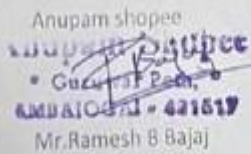 Anupam shopee
Anupam Shopee
AMBAJOGAI - 431517
Mr.Ramesh B Bajaj